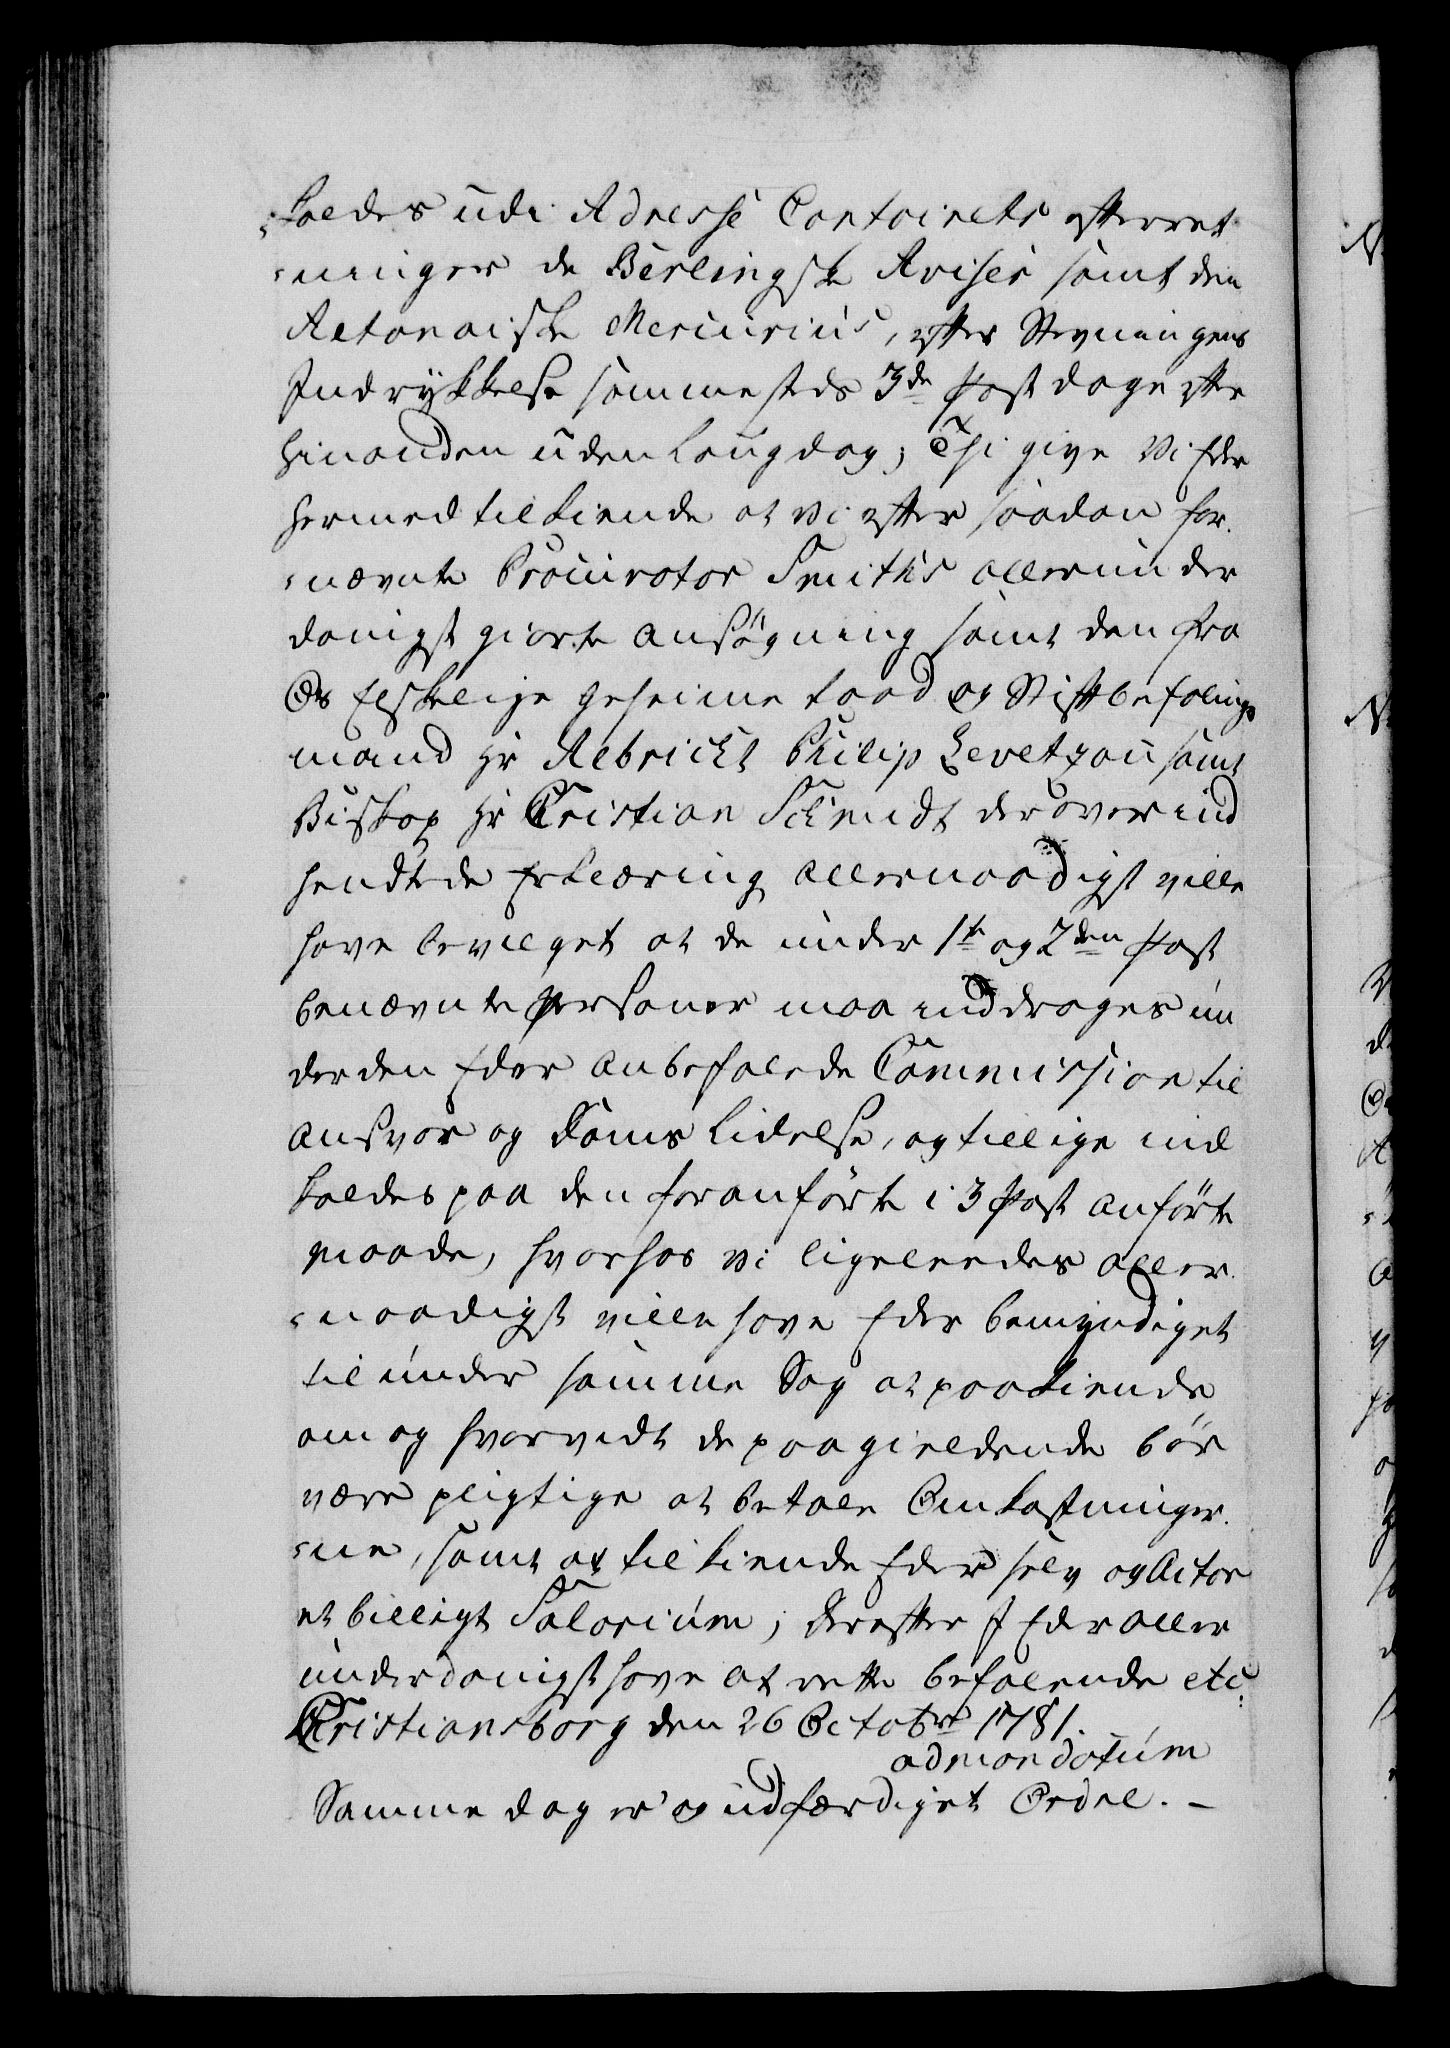 -kaldes udi Adresse Contoirets efterret
-ninger de Berlingske Aviser samt den
Altonaiske Mercurius, efter Stevningens
Indrykkelse sammesteds 3de Post dage efter
hinanden uden Laugdag; Thi give Vi Eder
hermed tilkiende at vi efter saadan for
-nævnte Procurator Smiths allerunder
danigst giorte Ansøgning samt den fra
Os Elskelige Geheime Raad og Stiftbefalings
mand Hr Albricht Philip Levetzau samt
Biskop Hr Christian Schmidt derover ind
hendtede Erklæring allernaadigst ville
have bevilget at de under 1te og 2den Post
benævnte Personer maa inddrages un
der den Eder anbefalede Commission til
Ansvar og Doms Lidelse, og tillige ind
kaldes paa den foranførte i 3 Post anførte
maade, hvorhos vi ligeleedes aller
-naadigst ville have Eder bemyndiget
til under samme Sag at paakiende
om og hvorvidt de paagieldende bør
være pligtige at betale Omkostninger
-ne, samt at tilkiende Eder selv og Actor
et billigt Salarium; Derefter I Eder aller
underdanigst have at rette befalende etc:
Christiansborg den 26 Octobr 1781.
ad mandatum
Samme dag er og udfærdiget Ordel. -